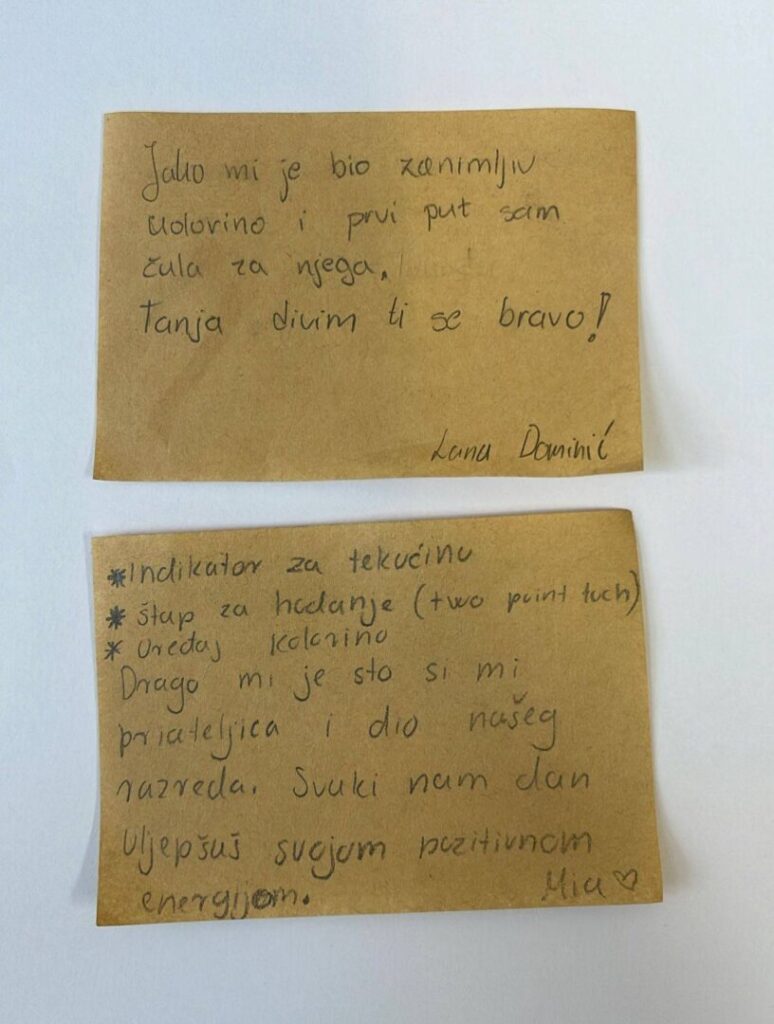 Jako mi je bio zanimljiv
kolorino i prvi put sam
čula za njega.
Tanja divim ti se bravo!
Lana Dominić
*Indikator za tekućinu
* štap za hodanje (two point tuch)
* Uređaj kolorino
Drago mi je sto si mi
priateljica i dio našeg
razreda. Svaki nam dan
Uljepšuš svojom pozitivnom
energijom.
Mia ♡